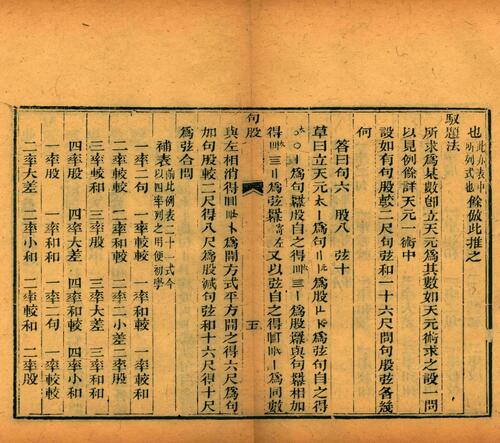 也此亦表中所列式也餘倣此推之
馭題法
所求爲某數卽立天元爲其數如天元術求之設一問
以見例餘詳天元一術中
設如有句股較二尺句弦和一十六尺問句股弦各幾
何
答曰句六 股八 弦十
草曰立天元太爲句爲股爲弦句自之得
爲句羃股自之得爲股羃與句羃相加
得爲弦羃寄左又以弦自之得爲同數
與左相消得爲開方式平方開之得六尺爲句
加句股較二尺得八尺爲股減句弦和十六尺得十尺
爲弦合問
補表前此例表二十一式今以四率列之用便初學
一率二句 一率和較 一率和較 一率較較
二率較和 二率和較 二率小差 二率股
三率較和 三率股 三率大差 三率和和
四率股和 四率大差 四率和較 四率小和
一率股 一率和和 一率二句 一率較較
二率大差 二率小和 二率較和 二率股
句股
五